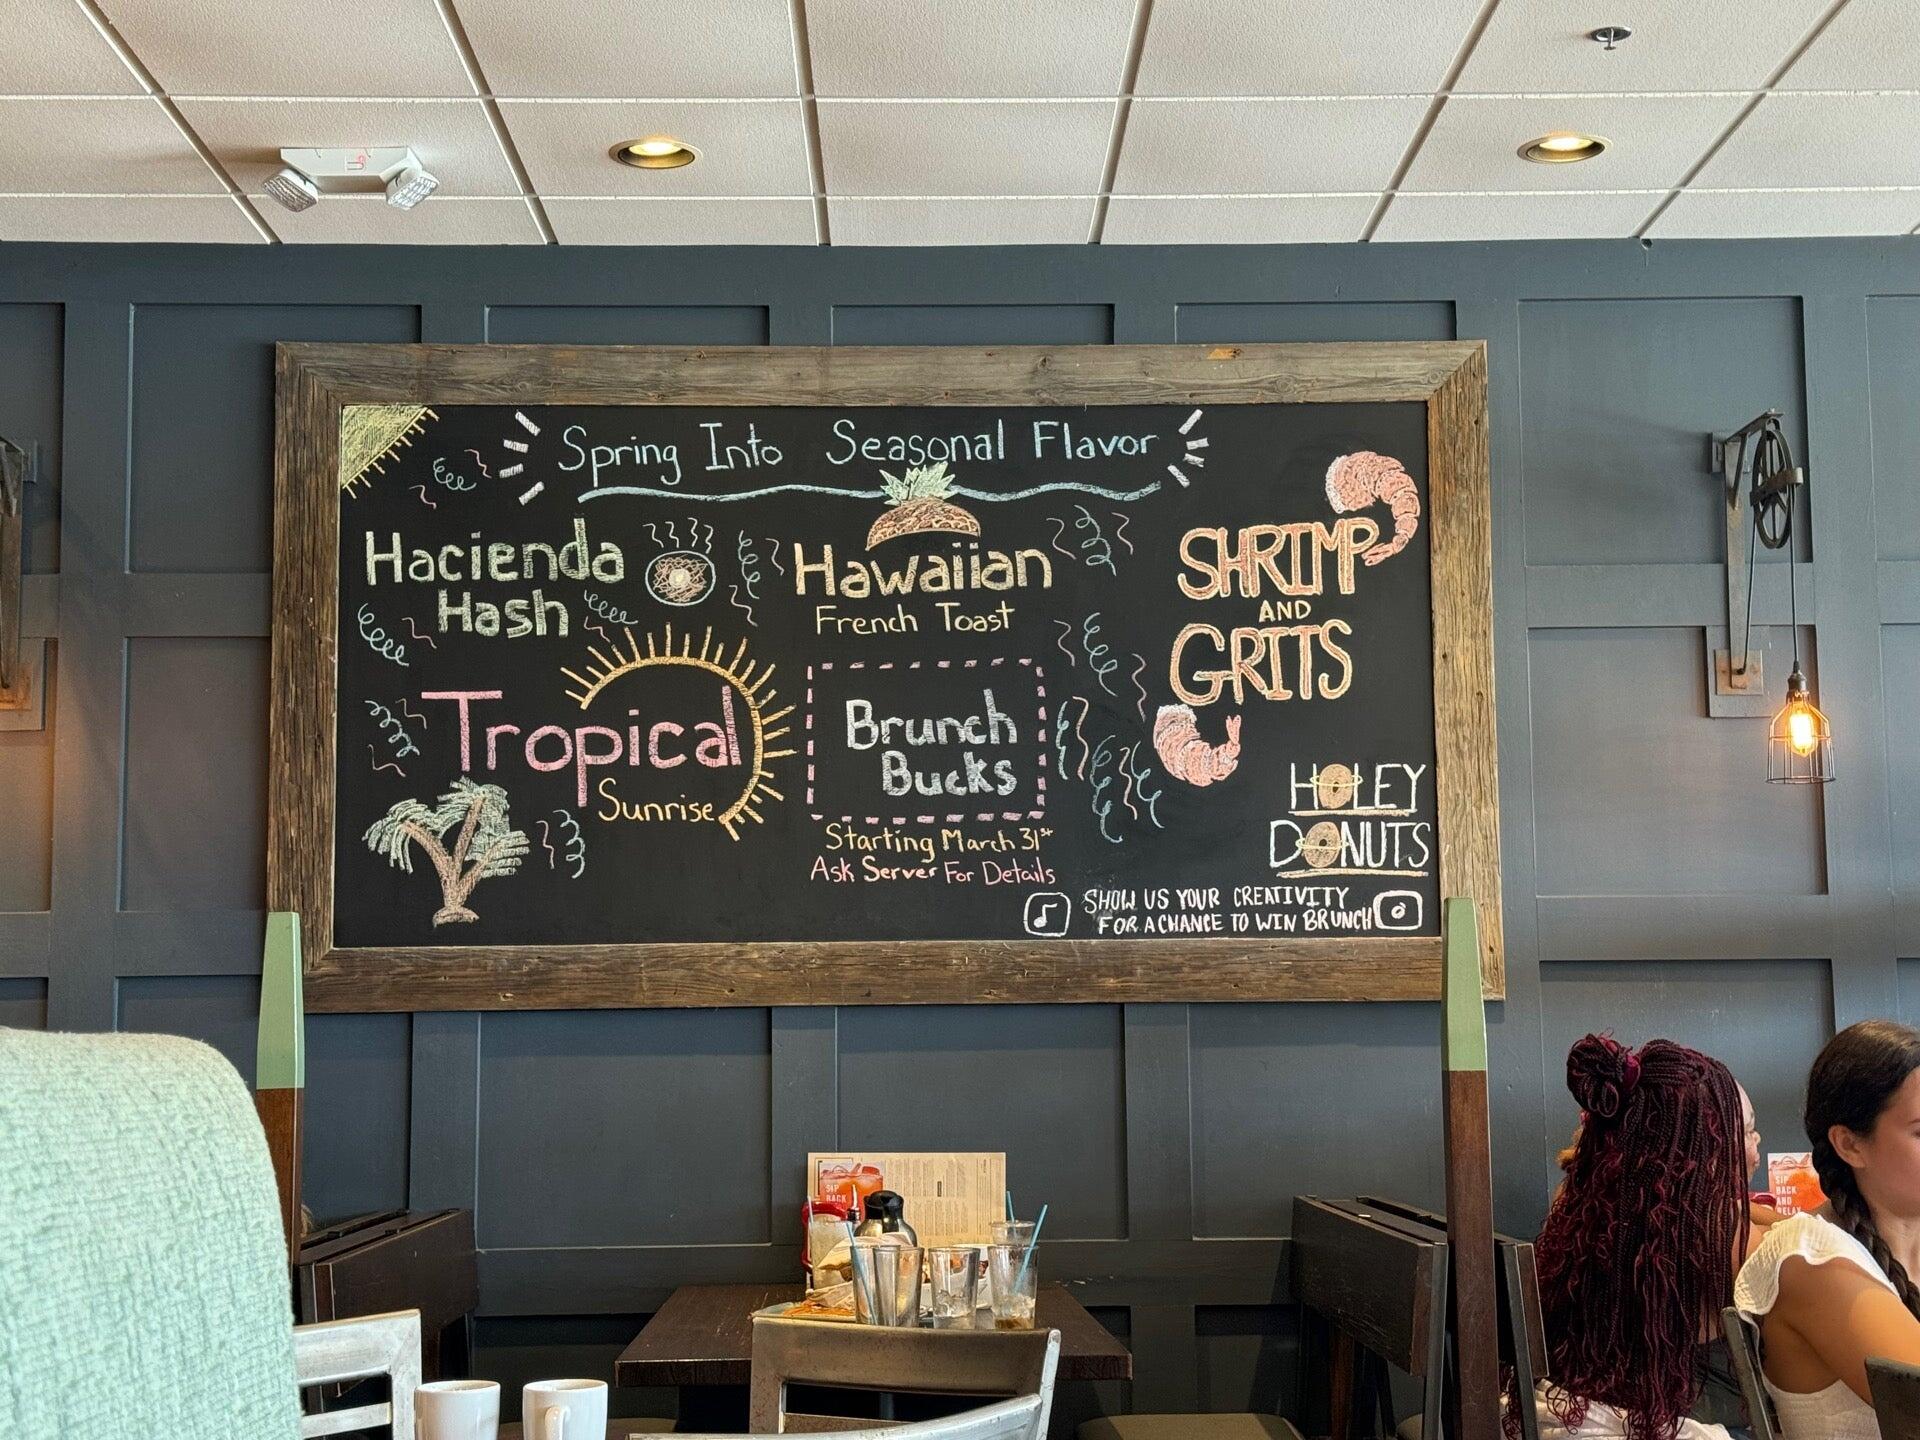 Spring Into Seasonal Flavor
Hacienda
Hash
Hawaiian
French Toast
SHRIMP
AND
GRITS
Tropical
Sunrise
Brunch
Bucks
Starting March 31st
Ask Server For Details
HOLEY
DONUTS
SHOW US YOUR CREATIVITY
FOR A CHANCE TO WIN BRUNCH
SIP
BACK
SIP
BACK
AND
RELAX